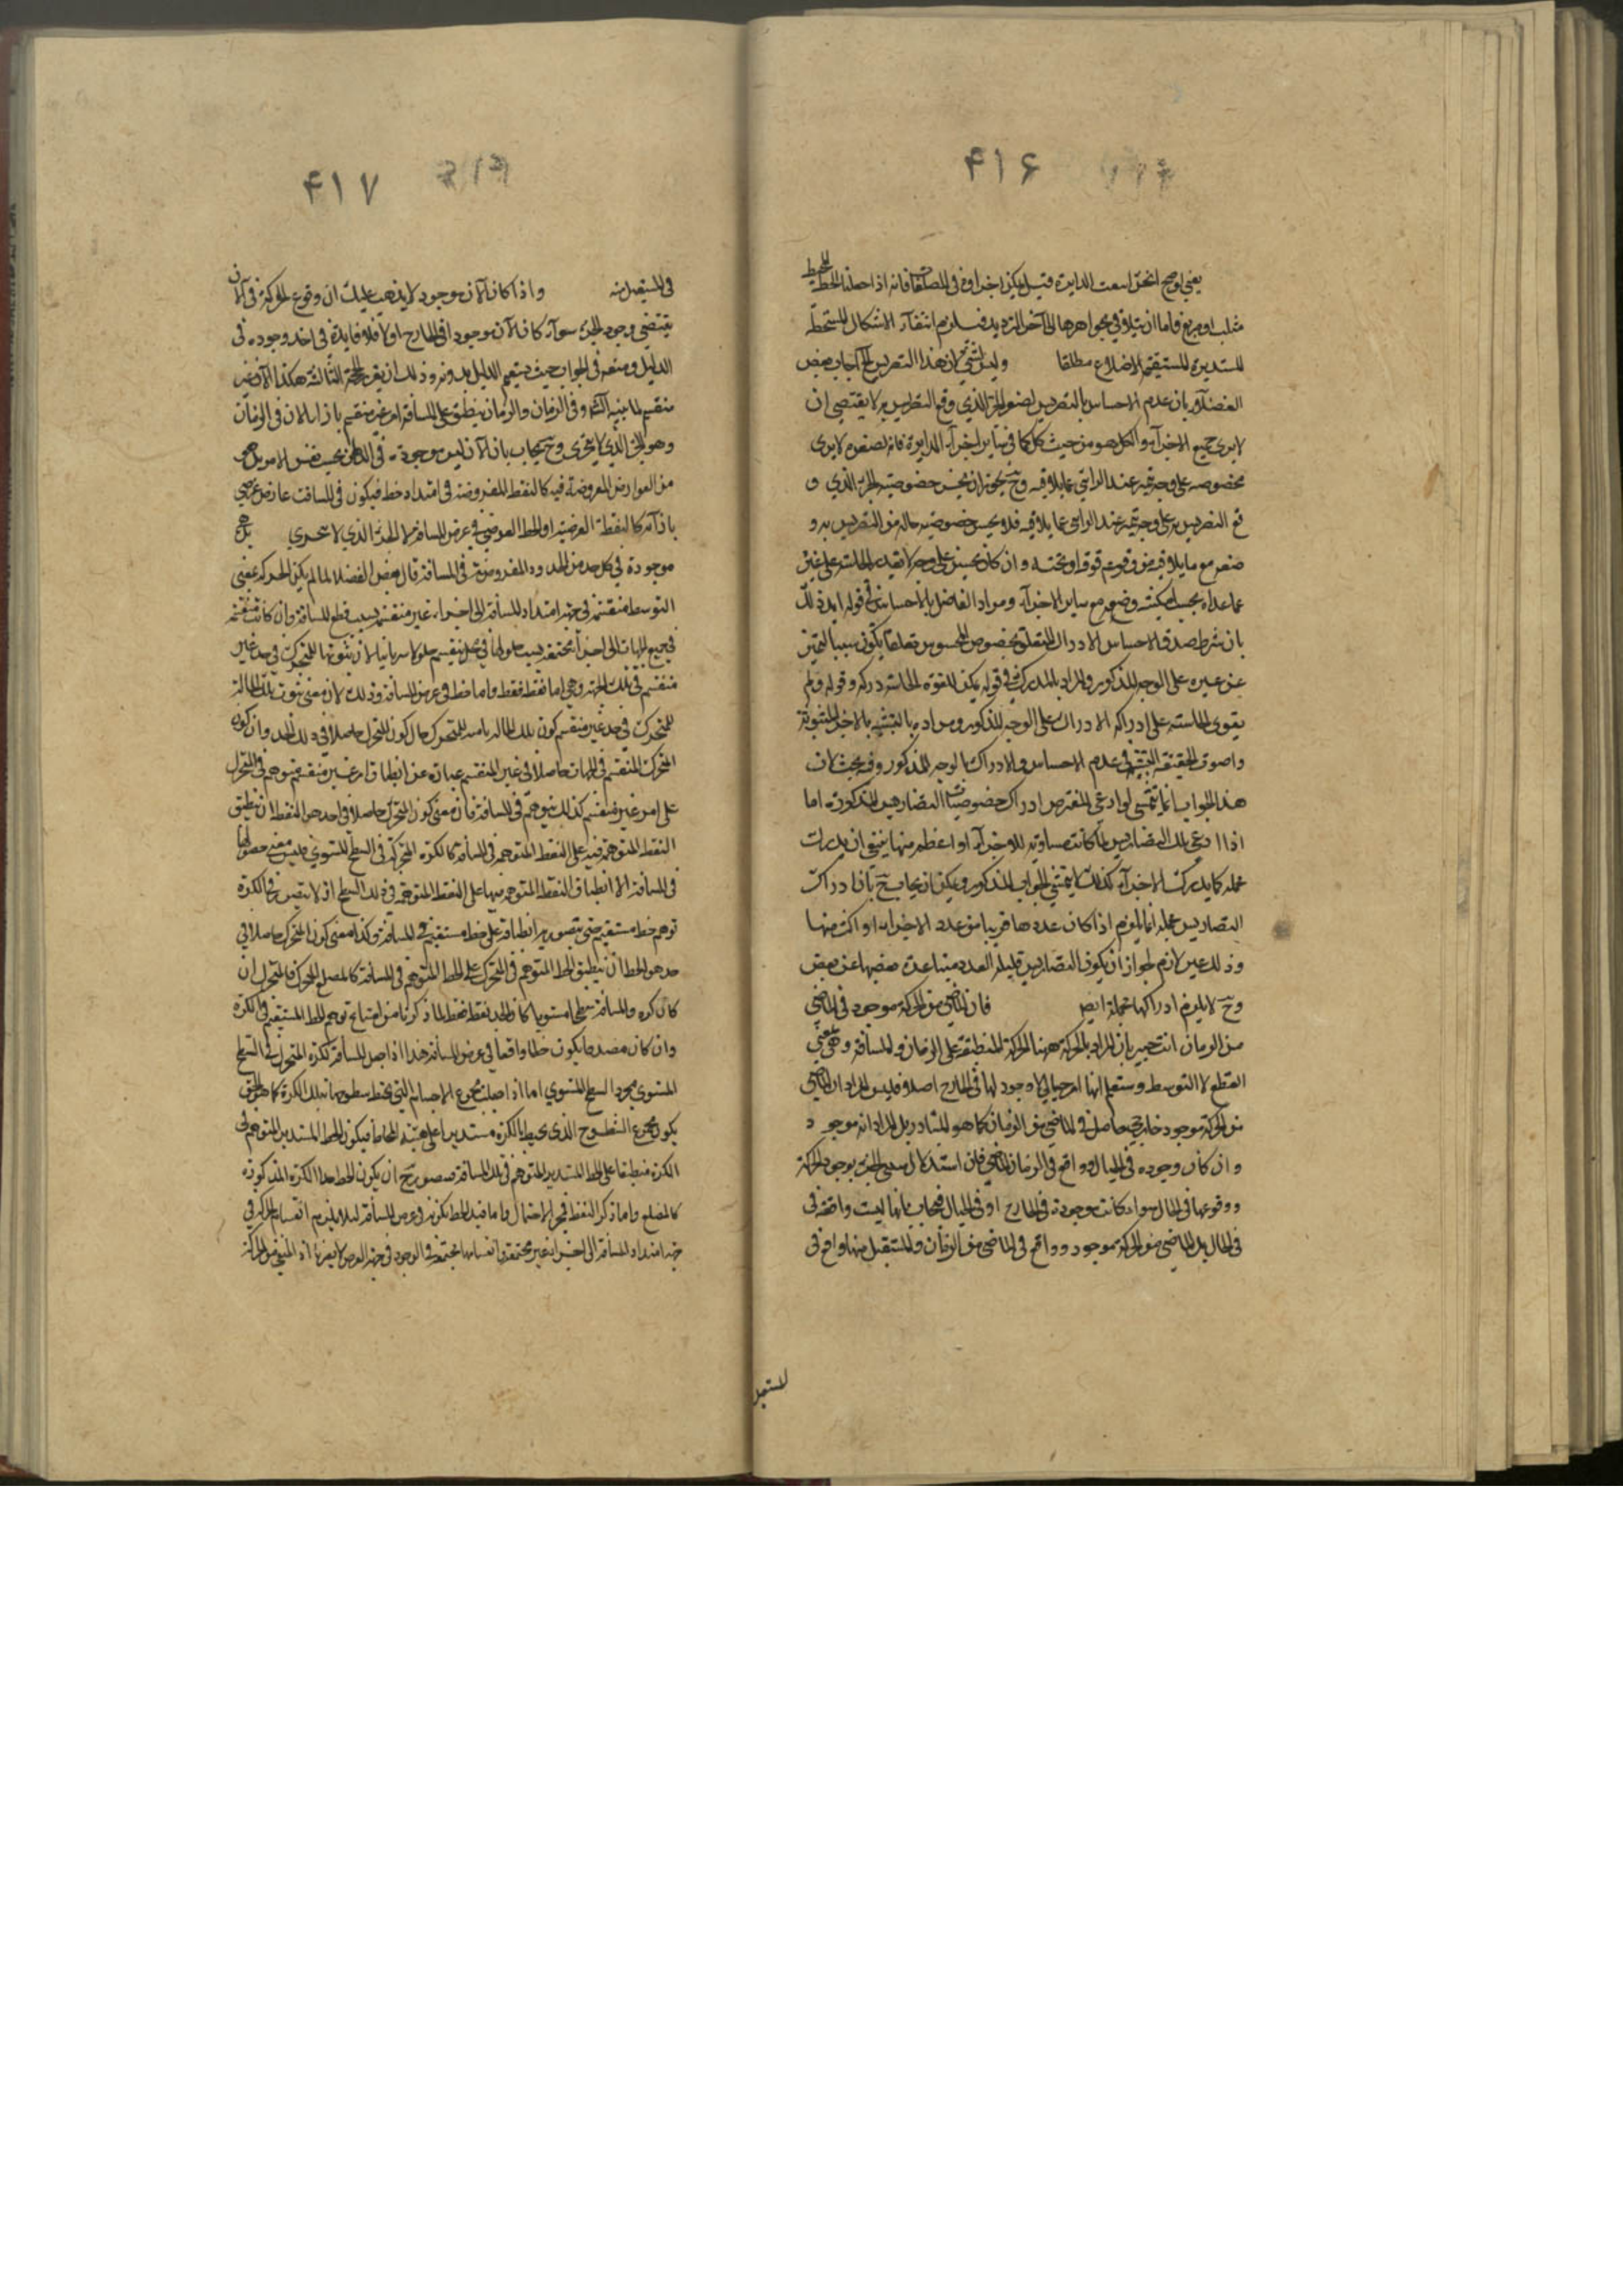 ۴۱۶
يعني لو صح انحن اسعت الدايرة قيل لم يكن اجزاؤه في المصاكفا فانه اذا جعلنا الخط المحيط
مثلث او مربع فاما ان يتلاقى بجواهرها الى آخر الترديد فيلزم انتفاء الاشكال المسطحة
المستديرة المستقيمة الاضلاع مطلقا وليس لشيء ان هذا التضريس الخ اجاب بعض
الفضلاء بان عدم الاحساس بالتضريس لصغر الجزء الذي وقع التضريس به لا يقتضي ان
لا يرى جميع الاجزاء والكل هو من حيث كل كما في سائر اجزاء الدايرة فانه لصغره لا يرى
بخصوصه على وجه تميز عند الرائي عما يلاقيه وح يجوز ان يحس خصوصية الجزء الذي و
قع التضريس به على وجه تميز عند الرائي عما يلاقيه فلا يحس خصوصية حاله من التضريس به و
صغر مع ما يلاقيه من وقوعه فوقه او تحته وان كان يحس على وجه لا يقدر الحاسة على تميز
عما عداه بحسب امكنته وضعه مع سائر الاجزاء ومراد الفاضل بالاحساس في قوله
بان شرط صدق الاحساس الادراك المتعلق بخصوص المحسوس تعلقا يكون سببا لتميز
عن غيره على الوجه المذكور والمراد بالمدرك في قوله يمكن للقوة الحاسة دركه وقوله ولم
يقوى الحاسة على ادراكه الادراك على الوجه المذكور ومراده بالتشبيه بالاجزاء المثبوتة
واصوق الحقيقة التشبيه في عدم الاحساس والادراك بالوجه المذكور وفيه بحث لان
هذا الجواب انما يتمشى لو ادعى المعترض ادراك خصوصيات التضاريس المذكورة اما
اذا ادعى تلك التضاريس لما كانت مساوية للاجزاء او اعظم منها ينبغي ان يدرك
جملة كما يدرك الاجزاء كذلك لا يتمشى الجواب المذكور ويمكن ان يجاب ح بان ادراك
التضاريس جملة انما يلزم اذا كان عددها قريبا من عدد الاجزاء او اكثر منها
وذلك غير لازم لجواز ان يكون التضاريس قليلة العدد متباعدة بعضها عن بعض
وح لا يلزم ادراكها جملة ايضا فان الماضي من الحركة موجود في الماضي
من الزمان انت خبير بان المراد بالحركة ههنا الحركة المنطبقة على الزمان والمسافة وهي بمعنى
القطع لا التوسط وستعلم انها امر خيالي لا وجود لها في الخارج اصلا فليس المراد ان الماضي
من الحركة موجود خارجي حاصل في الماضي من الزمان كما هو المتبادر بل المراد انه موجو د
وان كان وجوده في الخيال وواقع في الزمان الماضي فان استدلال مثبتي الجزء بوجود الحركة
ووقوعها في الحال سواء كانت موجودة في الخارج او في الخيال فيجاب بانها ليست واقعة في
في الحال بل الماضي من الحركة موجود وواقع في الماضي من الزمان والمستقبل منها واقع في
المستقبل
۴۱۷
في المستقبل منه واذا كان الآن موجود لا يذهب عليك ان وقوع الحركة في الآن
يقتضي وجود الجزء سواء كان الآن موجودا في الخارج او لا فلا فايدة في اخذ وجوده في
الدليل ومنعه في الجواب حيث يتم الدليل بدونه وذلك ان يقرر الحجة الثالثة هكذا الآن غير
منقسم لما بينه آنفا وفي الزمان والزمان ينطبق على المسافة امر غير منقسم بازاء الآن في الزمان
وهو الجزء الذي لا يتجزى وح يجاب بان الآن ليس موجودة في الزمان بحسب نفس الامر بل هو
من العوارض المعروضة فيه كالنقطة المفروضة في امتداد خط فيكون في المسافة عارض عرضي
بازائه كالنقطة العرضية او الخط العرضي في عرض المسافة لا الجزء الذي لا يتجزى بل هو
موجودة في كل حد من الحدود المفروضة في المسافة قال بعض الفضلاء لما لم يكن الحركة بمعنى
التوسط منقسمة في جهة امتداد المسافة الى اجزاء غير منقسم بسبب قطع المسافة وان كانت منقسم
في جميع الجهات الى اجزاء مجتمعة بسبب حلولها في محل منقسم حلولا سريانيا لان ثبوتها للمتحرك في حد غير
منقسم في تلك الجهة وهي اما نقطة فقط واما خط في عرض المسافة وذلك لان معنى ثبوت تلك الحالة
للمتحرك في حد غير منقسم كون تلك الحالة ثابتة للمتحرك حال كون المتحرك حاصلا في ذلك الحد وان كون
المتحرك المنقسم في الجهات حاصلا في غير المنقسم عبارة عن انطباق امر غير منقسم متوهم في المتحرك
على امر غير منقسم كذلك متوهم في المسافة فان معنى كون المتحرك حاصلا في احد هو النقطة ان ينطبق
النقطة المتوهمة فيه على النقطة المتوهمة في المسافة كالكرة المتحركة في السطح المستوي فليس معنى حصولها
في المسافة الا انطباق النقطة المتوهمة فيها على النقطة المتوهمة في ذلك السطح اذ لا يتصور في الكرة
توهم خط مستقيم حتى يتصور انطباقه على خط مستقيم في المسافة وكذا معنى كون المتحرك حاصلا في
حد هو الخط ان ينطبق الخط المتوهم في المتحرك على الخط المتوهم في المسافة كالمضلع المتحرك فالمتحرك ان
كان كرة والمسافة سطحا مستويا كان الحد نقطة فقط لما ذكرنا من امتناع توهم الخط المستقيم في الكرة
وان كان مضلعا يكون خطا واقعا في عرض المسافة هذا اذا جعل المسافة لكرة المتحرك في السطح
المستوي مجرد السطح المستوي اما اذا جعلت مجموع الاجسام التي يحيط سطوحها بتلك الكرة كما هو الحق
يكون مجموع السطوح الذي يحيط بالكرة مستديرا على هيئة المحاط فيكون الخط المستدير المتوهم في
الكرة منطبقا على الخط المستدير المتوهم في تلك المسافة فيتصور ح ان يكون الخط حدا الكرة المذكورة
كالمضلع واما ذكر النقطة فمجرد الاحتمال واما قيد الخط بكونه في عرض المسافة لئلا يلزم انقسام الحركة في
جهة امتداد المسافة الى اجزاء غير مجتمعة وانقسامها مجتمعة في الوجود في جهة العرض لا يضرنا اذ المنفي من الحركة